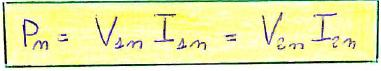 Pₙ = V₁ₙ I₁ₙ = V₂ₙ I₂ₙ